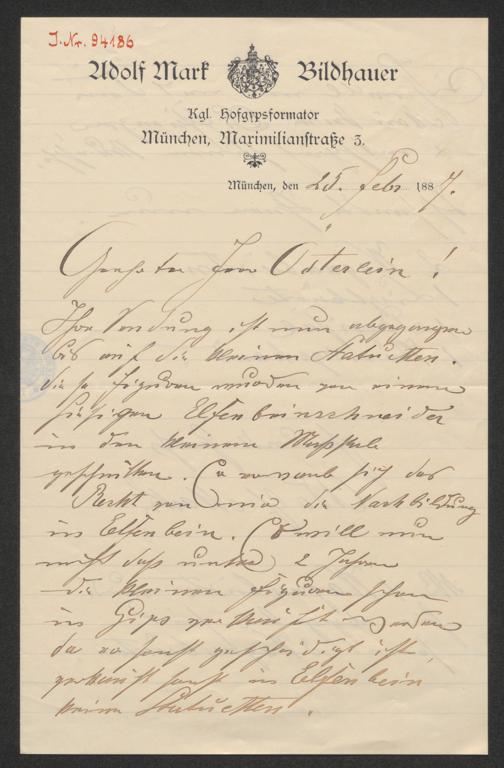 J. Nr. 94186
Adolf Mark Bildhauer
Kgl. Hofgypsformator
München, Maximilianstraße 3.
München, den 25. Febr. 1887.
Geehrter Herr Österlein!
Ihre Sendung ist nun abgegangen
bis auf die kleinen Statuetten.
diese Figuren wurden von einem
hiesigen Elfenbeinschneider
in den kleinen Maßstab
geschnitten. Er erwarb sich das
Recht von mir die Nachbildung
in Elfenbein. Er will nun
nicht daß unter 2 Jahren
die kleinen Figuren schon
in Gips verkauft werden
da er sonst geschädigt ist,
verkauft sonst in Elfenbein
keine Statuetten.